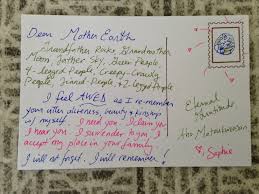 Dear Mother Earth
Grandfather Rocks, Grandmother
Moon, Father Sky, Green People,
4-legged People, Creepy-Crawly
People, Finned-People, & 2-legged People
I feel AWED as I remember
your utter aliveness, beauty, & kinship
w/ myself. I need you. I claim you
I hear you. I surrender to you. I
accept my place in your family.
I will not forget. I will remember!
Eternal
Gratitude
The Motherversen
Sophie